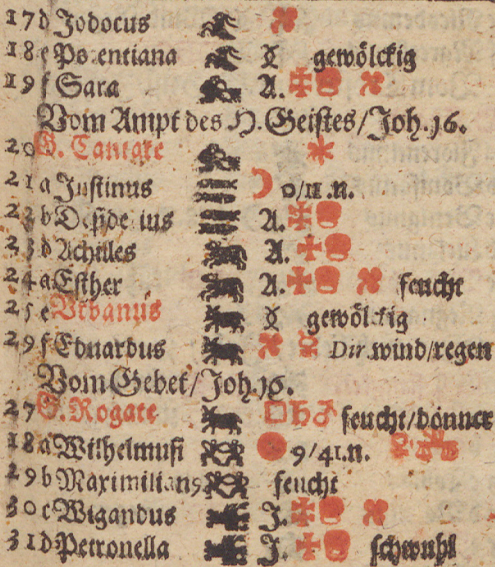 17 d Jodocus
18 e Potentiana gewölckig
19 f Sara A.
Vom Ampt des H. Geistes/Joh. 16.
20 G. Cantate
21 a Justinus 0/11.n.
b Desideius A.
d Achilles A.
24 a Esther A. feucht
25 e Vrbanus gewölckig
29 f Eduardus ☿ Dir. wind/regen
Vom Gebet/Joh. 16.
27 G. Rogate □♄♂ feucht/donner
18 a Wilhelmus 9/41.n.
29 b Maximilian9 feucht
30 c Wigandus J.
31 d Petronella J. schwuhl